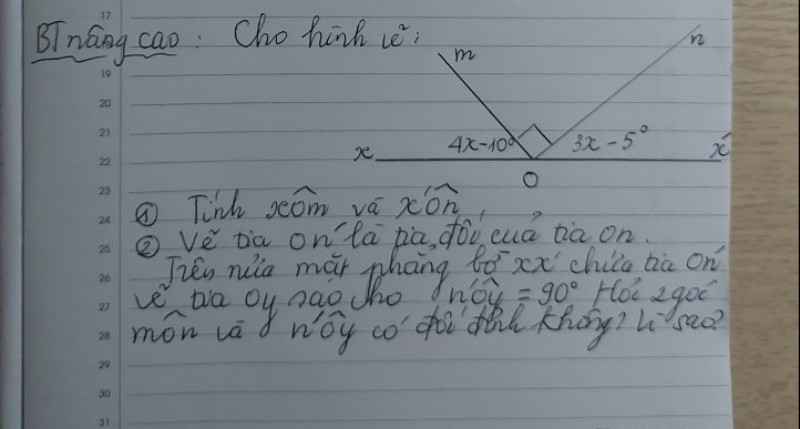 17
BT nâng cao: Cho hình vẽ:
m
n
19
20
21
4x-10°
3x-5°
22
x
x'
O
23
24
① Tính xÔm và x'Ôn
25
② Vẽ tia On' là tia đối của tia On.
26
Trên nửa mặt phẳng bờ xx' chứa tia On'
27
vẽ tia Oy sao cho n'Ôy = 90° Hỏi 2 góc
28
mÔn và n'Ôy có đối đỉnh không? Vì sao?
29
30
31